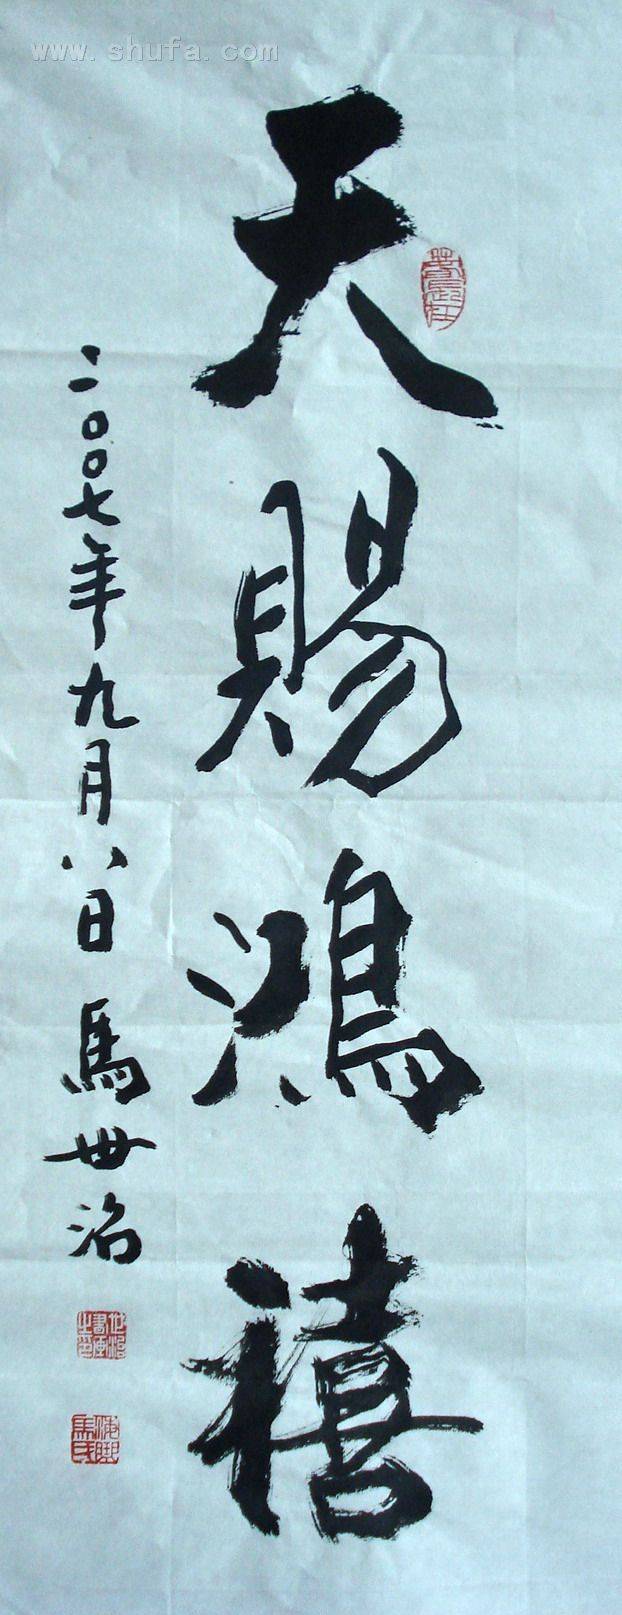 www.shufa.com
天賜鴻禧
二〇〇七年九月八日 馬世洺